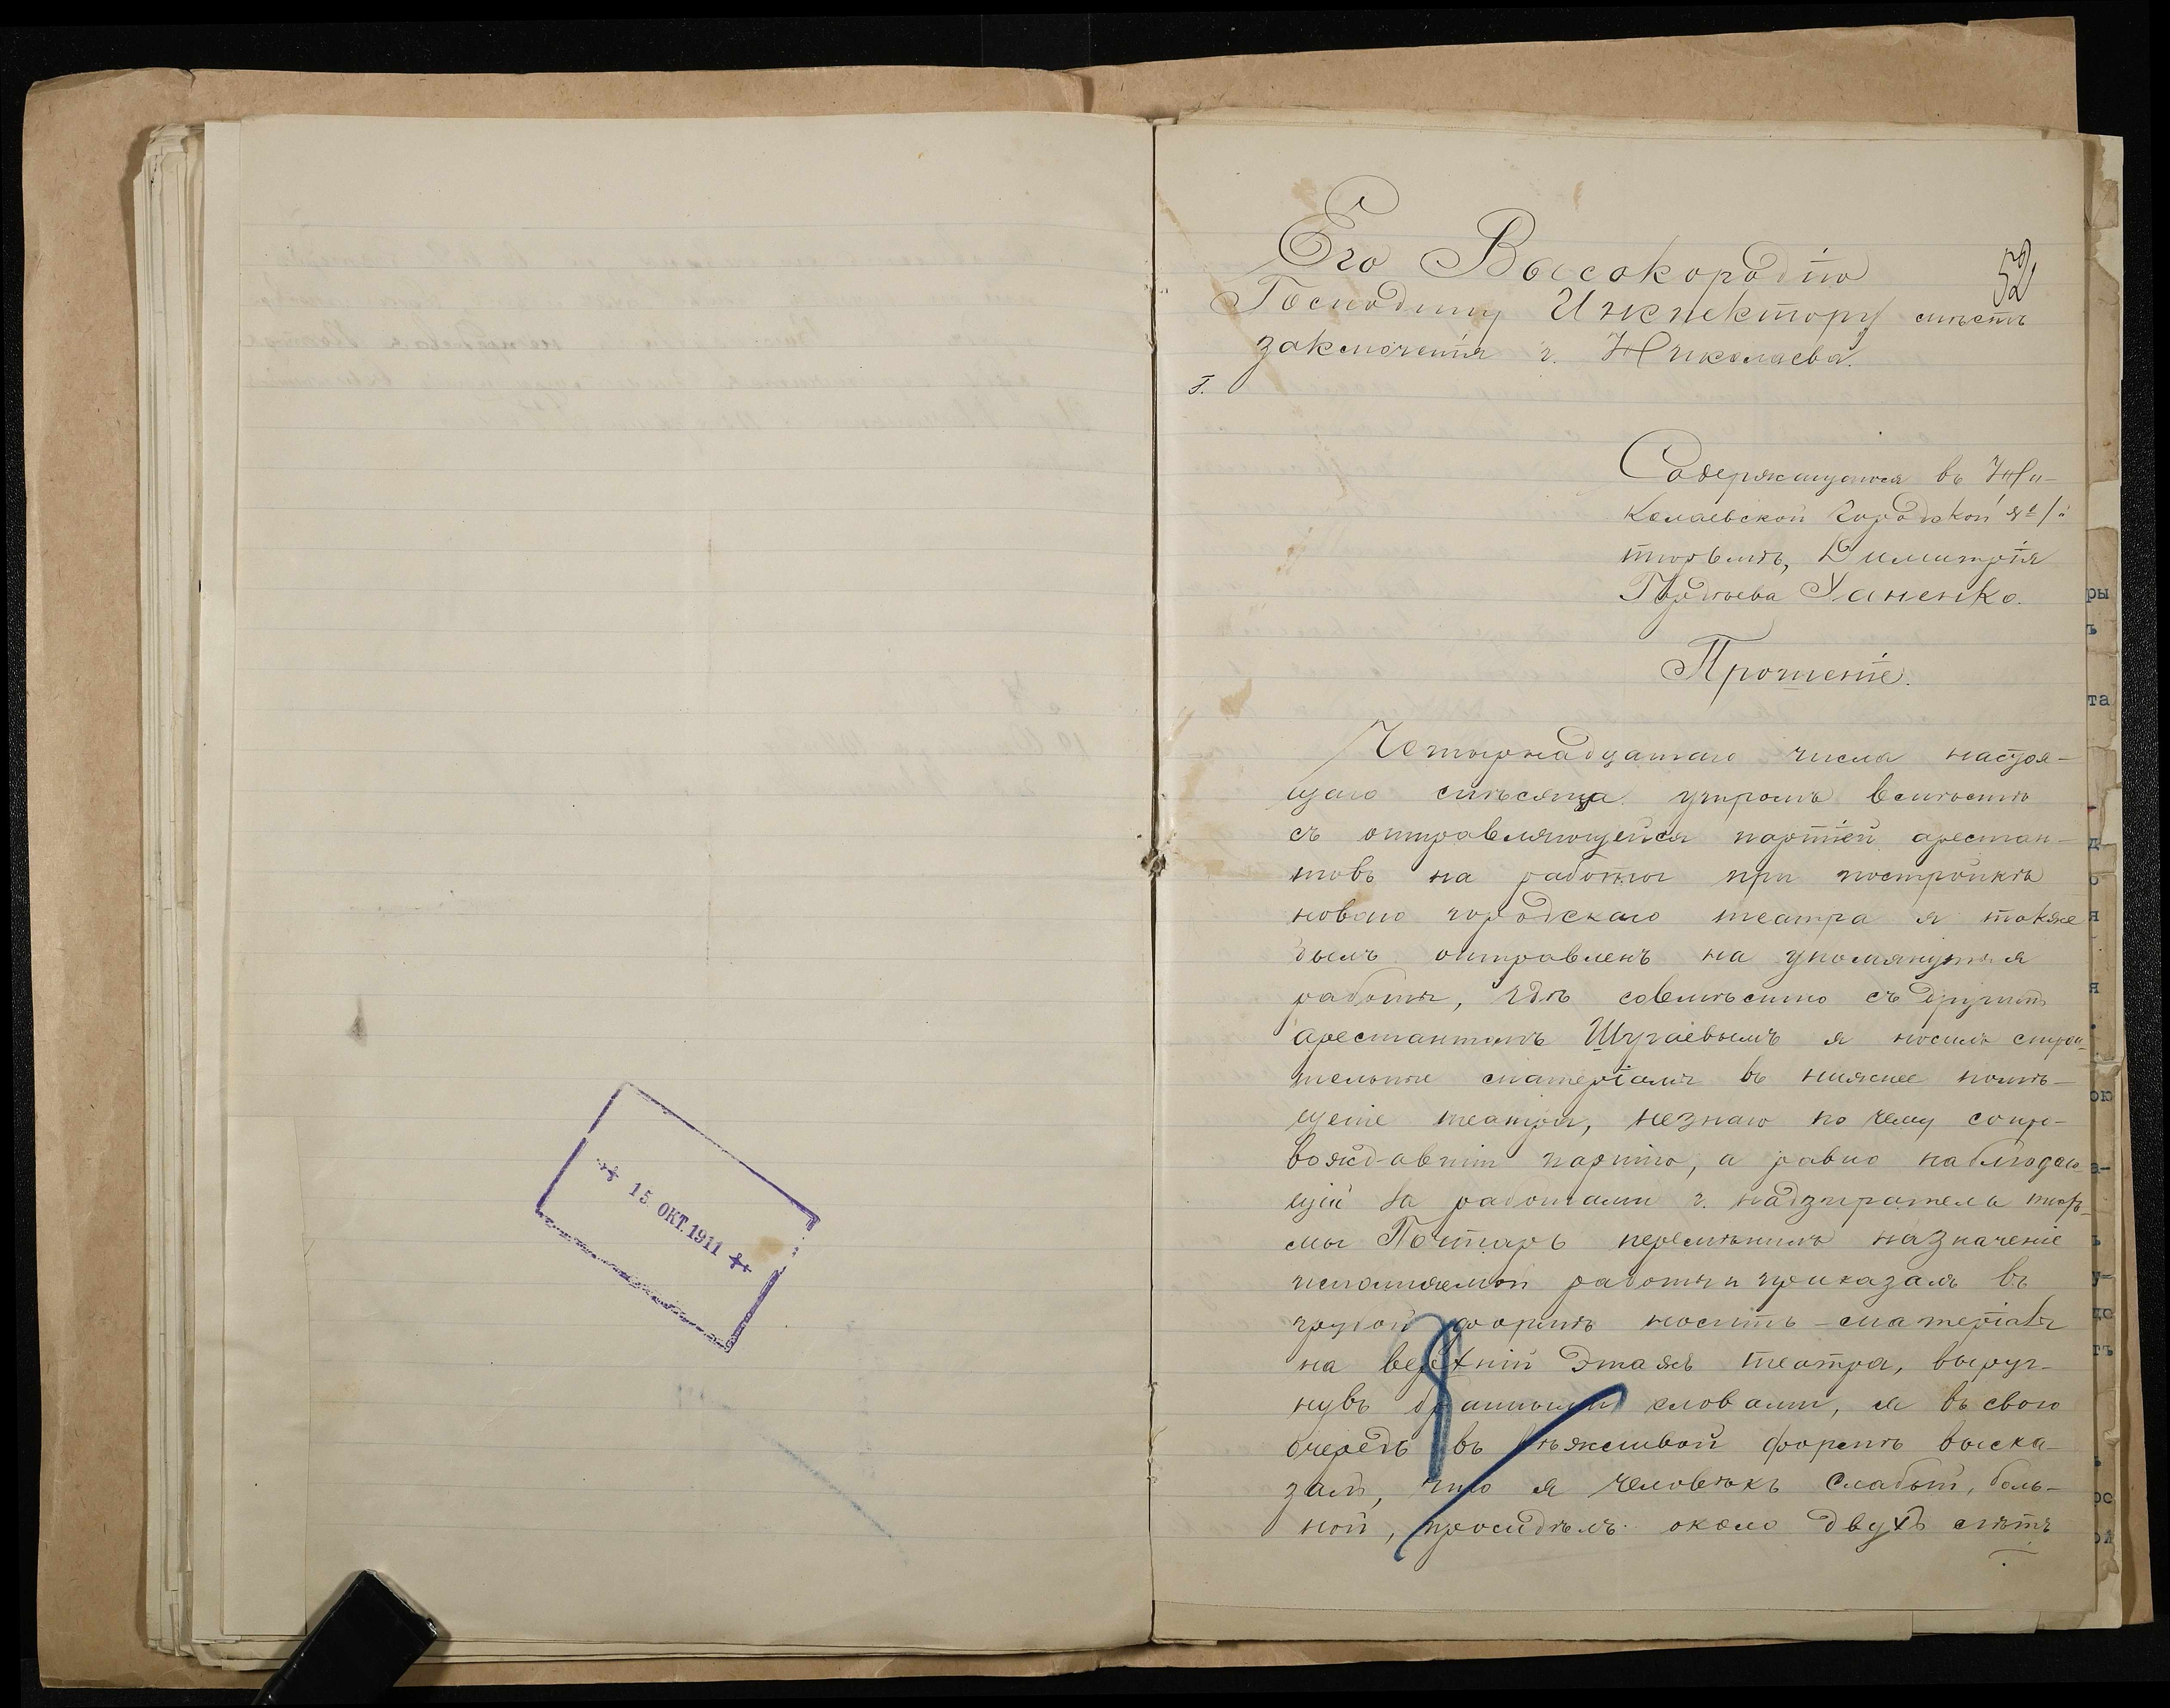 15 ОКТ. 1911
52
Его Высокородію
Господину Инспектору мѣстъ
заключенія г. Николаева.
Содержащагося въ Ни-
колаевской городской
тюрьмѣ, Димитрія
Гордѣева Ханенко.
Прошеніе.
Четырнадцатаго числа настоя-
щаго мѣсяца утромъ вмѣстѣ
съ отправляющейся партіей арестан-
товъ на работы при постройкѣ
новаго городскаго театра я также
былъ отправленъ на упомянутыя
работы, гдѣ совмѣстно съ другимъ
арестантомъ Шугаевымъ я носилъ строи-
тельные матеріалы въ нижнее помѣ-
щеніе театра, незнаю по чему сопро-
вождавшій партію, а равно наблюдаю
щій за работами г. надзирателя тюрь-
мы Потарь перемѣнилъ назначеніе
исполняемой работы и приказалъ въ
грубой формѣ носить матеріалы
на верхній этажъ театра, выруг-
нувъ бранными словами, я въ свою
очередь въ вѣжливой формѣ выска-
залъ, что я человѣкъ слабый, боль-
ной, просидѣлъ около двухъ лѣтъ
ры
ъ
та
д
о
н
я
ок
а-
ъ
у-